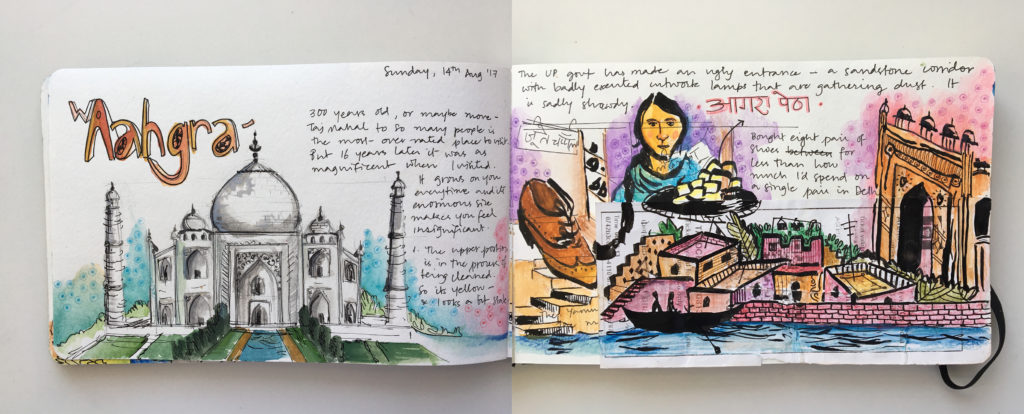 Sunday, 14th Aug '17
WAahgra-
300 years old, or maybe more -
Taj Mahal to so many people is
the most over rated place to visit
But 16 years later it was as
magnificent when I visited.
It grows on you
everytime and its
enormous size
makes you feel
insignificant.
The upper portion
is in the
being cleaned
So its yellow -
& looks a bit
The UP govt has made an ugly entrance - a sandstone corridor
with badly executed lamps that are gathering dust. It
is sadly showdy.
आगरा पेठा
Bought eight pair of
shoes between for
less than how
much I'd spend on
a single pair in Delhi